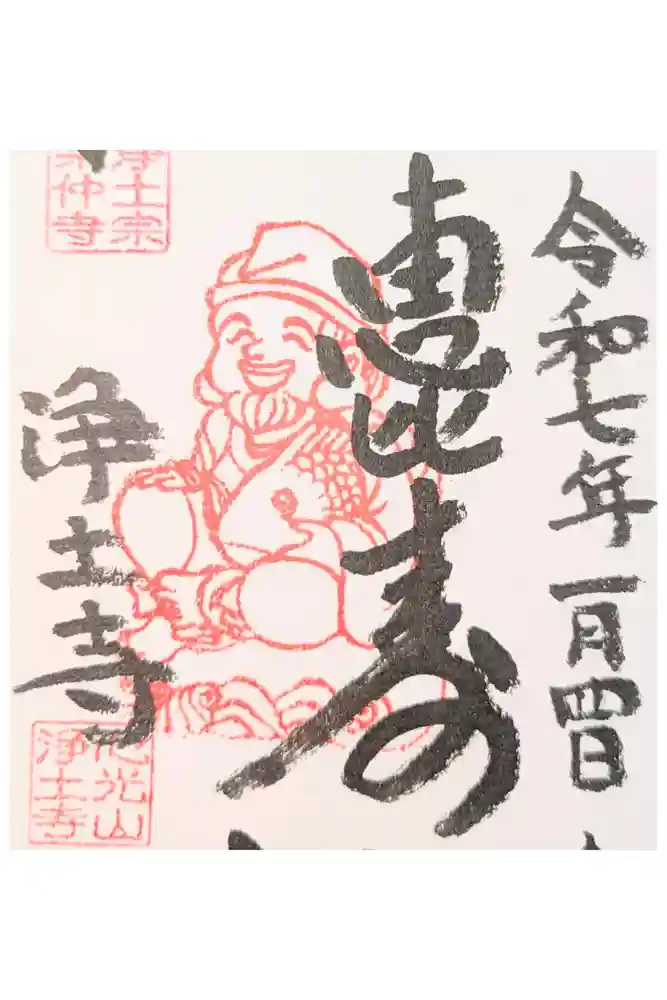 令和七年一月四日
恵比寿
浄土寺
浄土宗
仲寺
光山
浄土寺